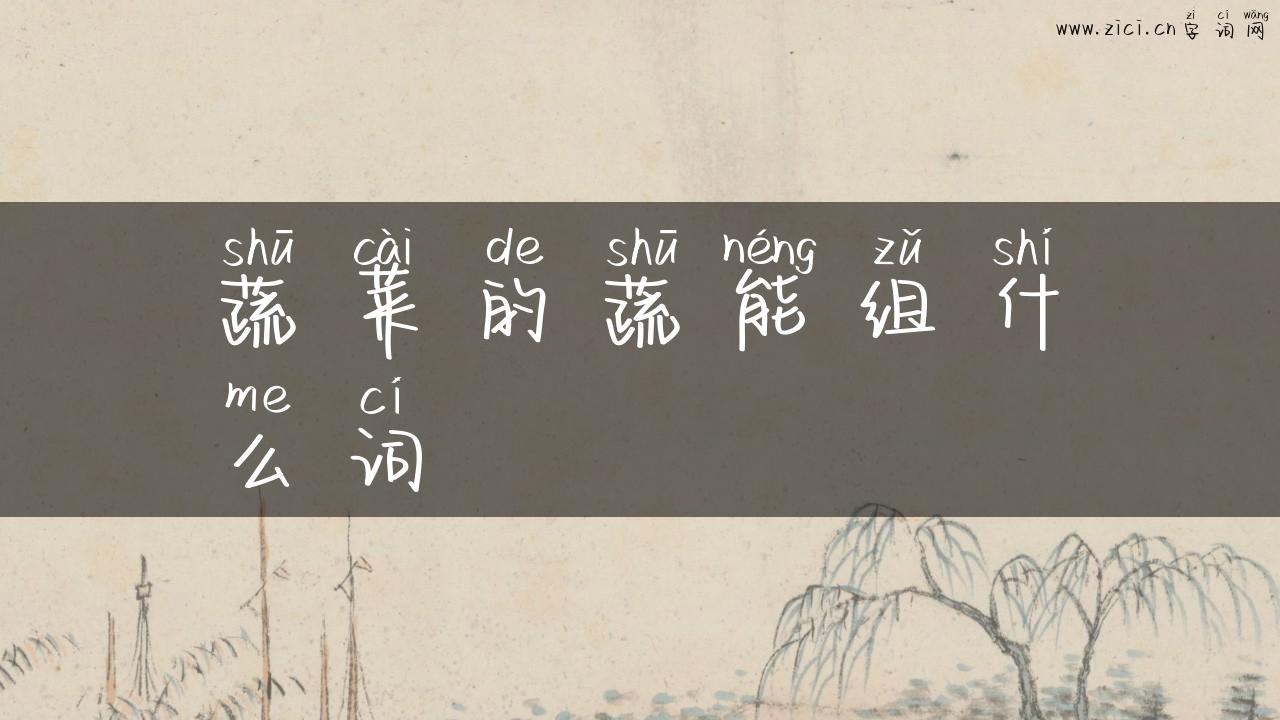 zì cí wǎng
www.zici.cn 字词网
shū cài de shū néng zǔ shí
蔬菜的蔬能组什
me cí
么词